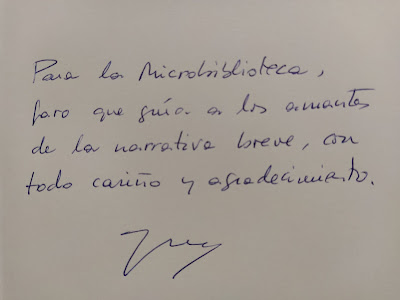 Para la Microbiblioteca,
faro que guía a los amantes
de la narrativa breve, con
todo cariño y agradecimiento.